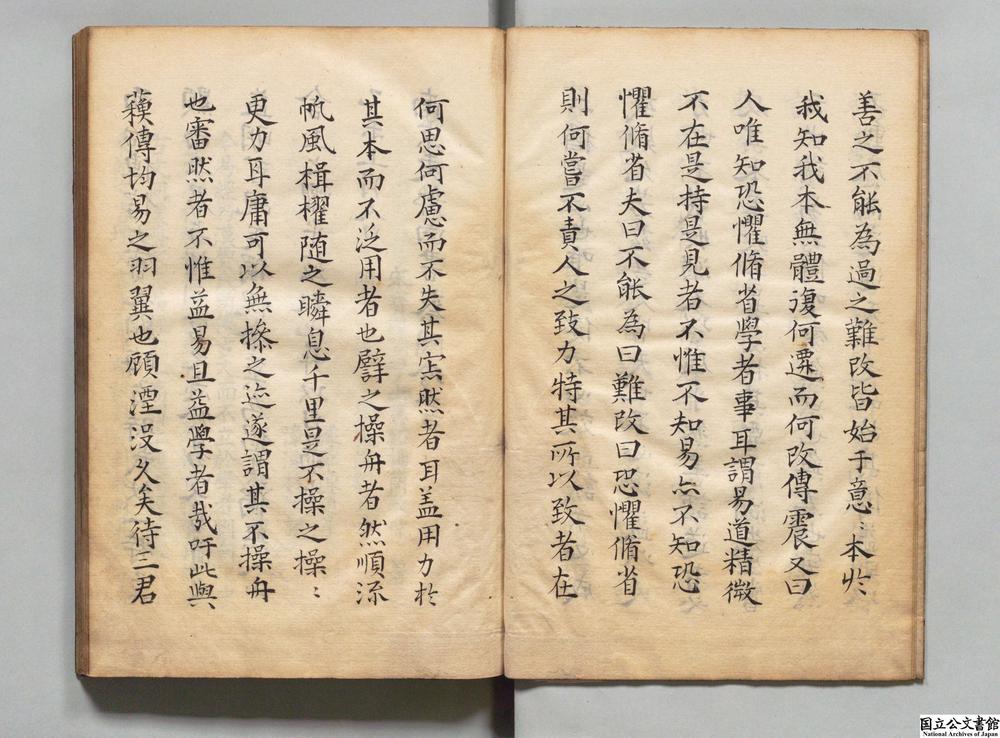 善之不能為過之難改皆始于意〻本扵
我知我本無體復何遷而何改傳震又曰
人唯知恐懼脩省學者事耳謂易道精微
不在是持是見者不惟不知易亦不知恐
懼脩省夫曰不能為曰難改曰恐懼脩省
則何嘗不責人之致力特其所以致者在
何思何慮而不失其寂然者耳盖用力扵
其本而不泛用者也譬之操舟者然順流
帆風楫櫂随之瞬息千里是不操之操〻
更力耳庸可以無操之迹遂謂其不操舟
也審然者不惟益易且益學者哉吁此與
蘓傳均易之羽翼也顧湮没久矣待三君
国立公文書館
National Archives of Japan